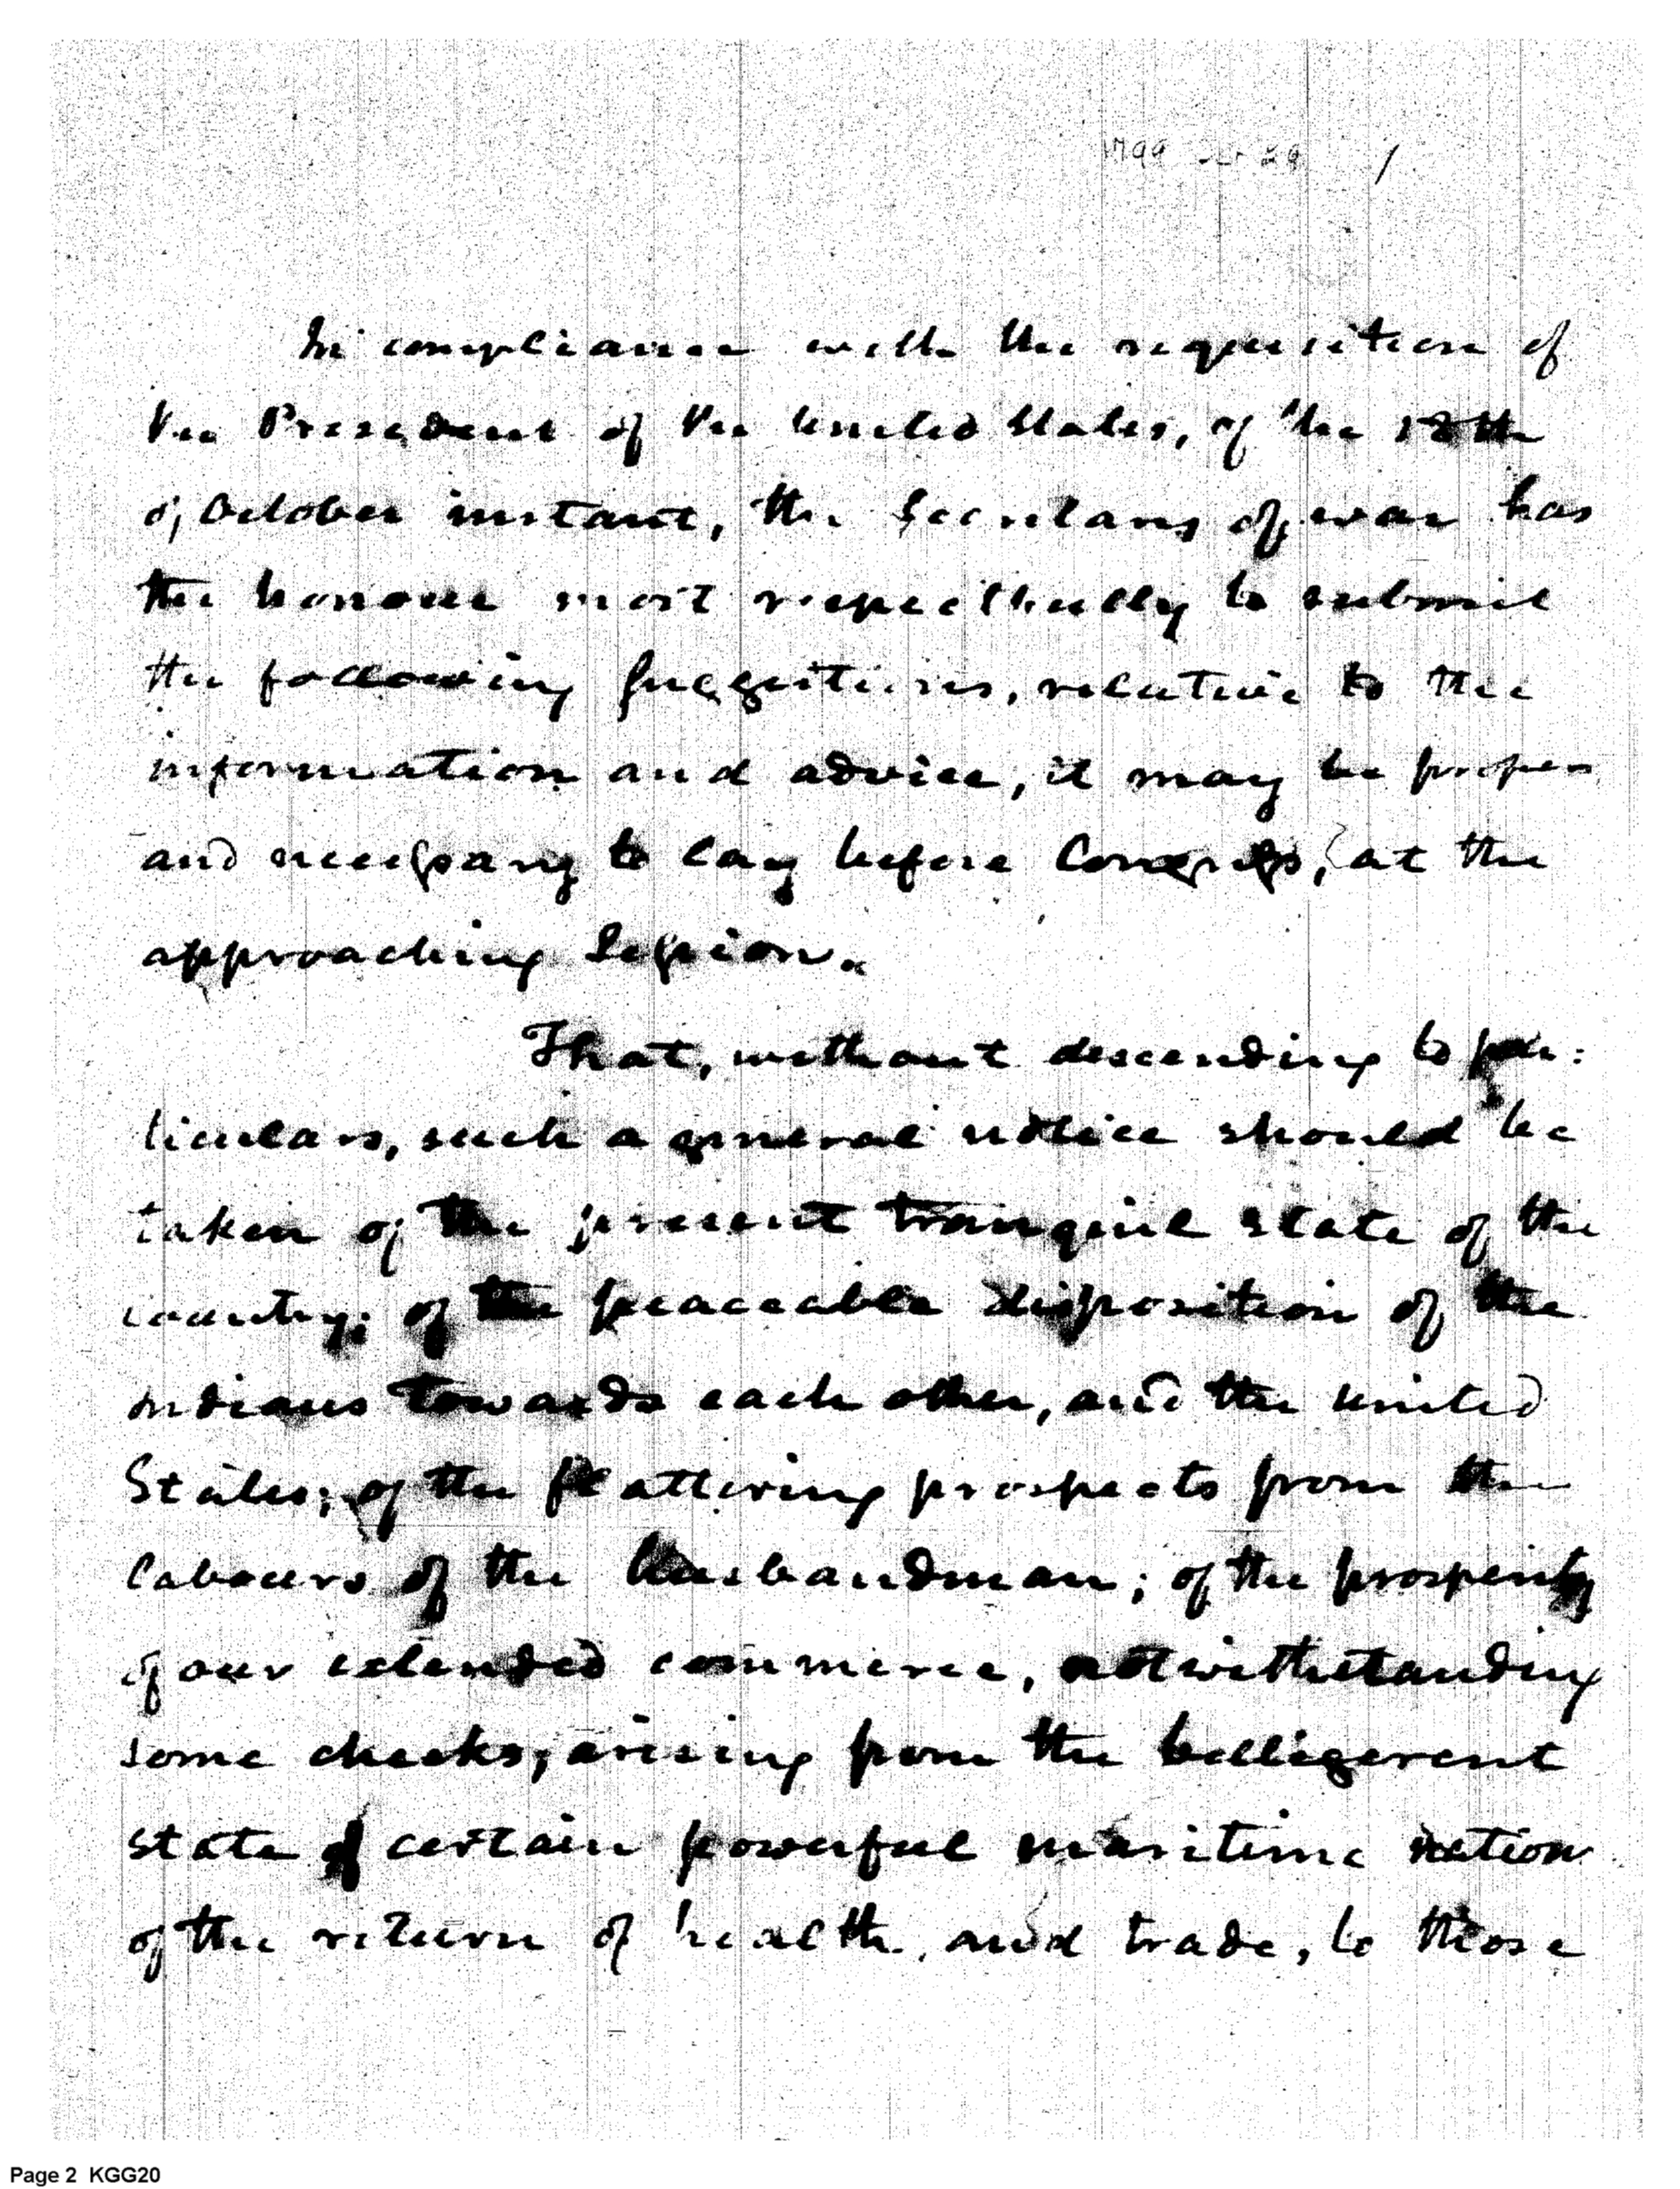 1799 29 /
In compliance with the requisition of
the President of the United States, of the 18th
of October instant, the Secretary of war has
the honour most respectfully to submit
the following suggestions, relative to the
information and advice, it may be proper
and necessary to lay before Congress, at the
approaching Session.
That, without descending to par:
ticulars, such a general notice should be
taken of the present tranquil state of the
country; of the peaceable disposition of the
indians towards each other, and the United
States; of the flattering prospects from the
labours of the husbandman; of the prosperity
of our extended commerce, notwithstanding
some checks, arising from the belligerent
state of certain powerful maritime nation
of the return of health, and trade, to those
Page 2 KGG20